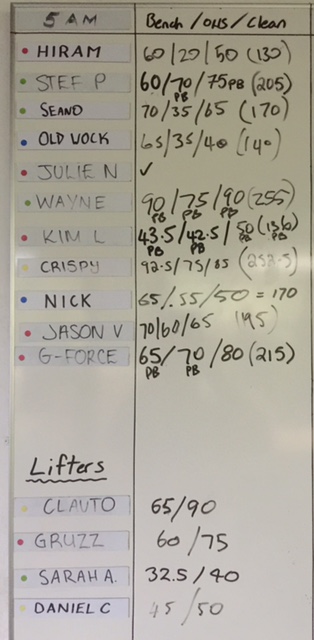 5 AM Bench / OHS / Clean
HIRAM 60/20/50 (130)
STEF P 60/70/75PB (205)
PB
SEANO 70/35/65 (170)
OLD VOCK 65/35/40 (140)
JULIE N ✓
WAYNE 90/75/90 (255)
PB PB PB
KIM L 43.5/42.5/50 (136)
PB PB PB PB
CRISPY 92.5/75/85 (252.5)
NICK 65/55/50 = 170
JASON V 70/60/65 (195)
G-FORCE 65/70/80 (215)
PB PB
Lifters
CLAUTO 65/90
GRUZZ 60/75
SARAH A. 32.5/40
DANIEL C 45/50